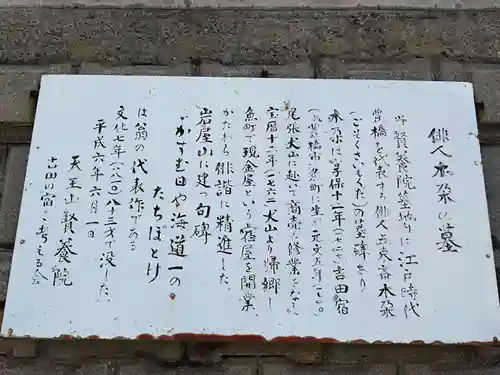 俳人木朶の墓
当賢養院墓地に江戸時代
豊橋を代表する俳人五束斎木朶
(ごそくさいもくだ)の墓碑あり
木朶は享保十一年(一七二六)吉田宿
(現豊橋市魚町)に生れ元文五年(一七四〇)
尾張犬山に赴いて商売の修業をなし
宝暦十二(一七六二)犬山より帰郷し
魚町で現金屋という宿屋を開業、
かたわら俳諧に精進した
岩屋山に建つ句碑
"かすむ日や海道一の
たちぼとけ"
は翁の代表作である
文化七年(一八一〇)八十三才で没した、
平成六年六月一日
天王山賢養院
吉田の宿を考える会